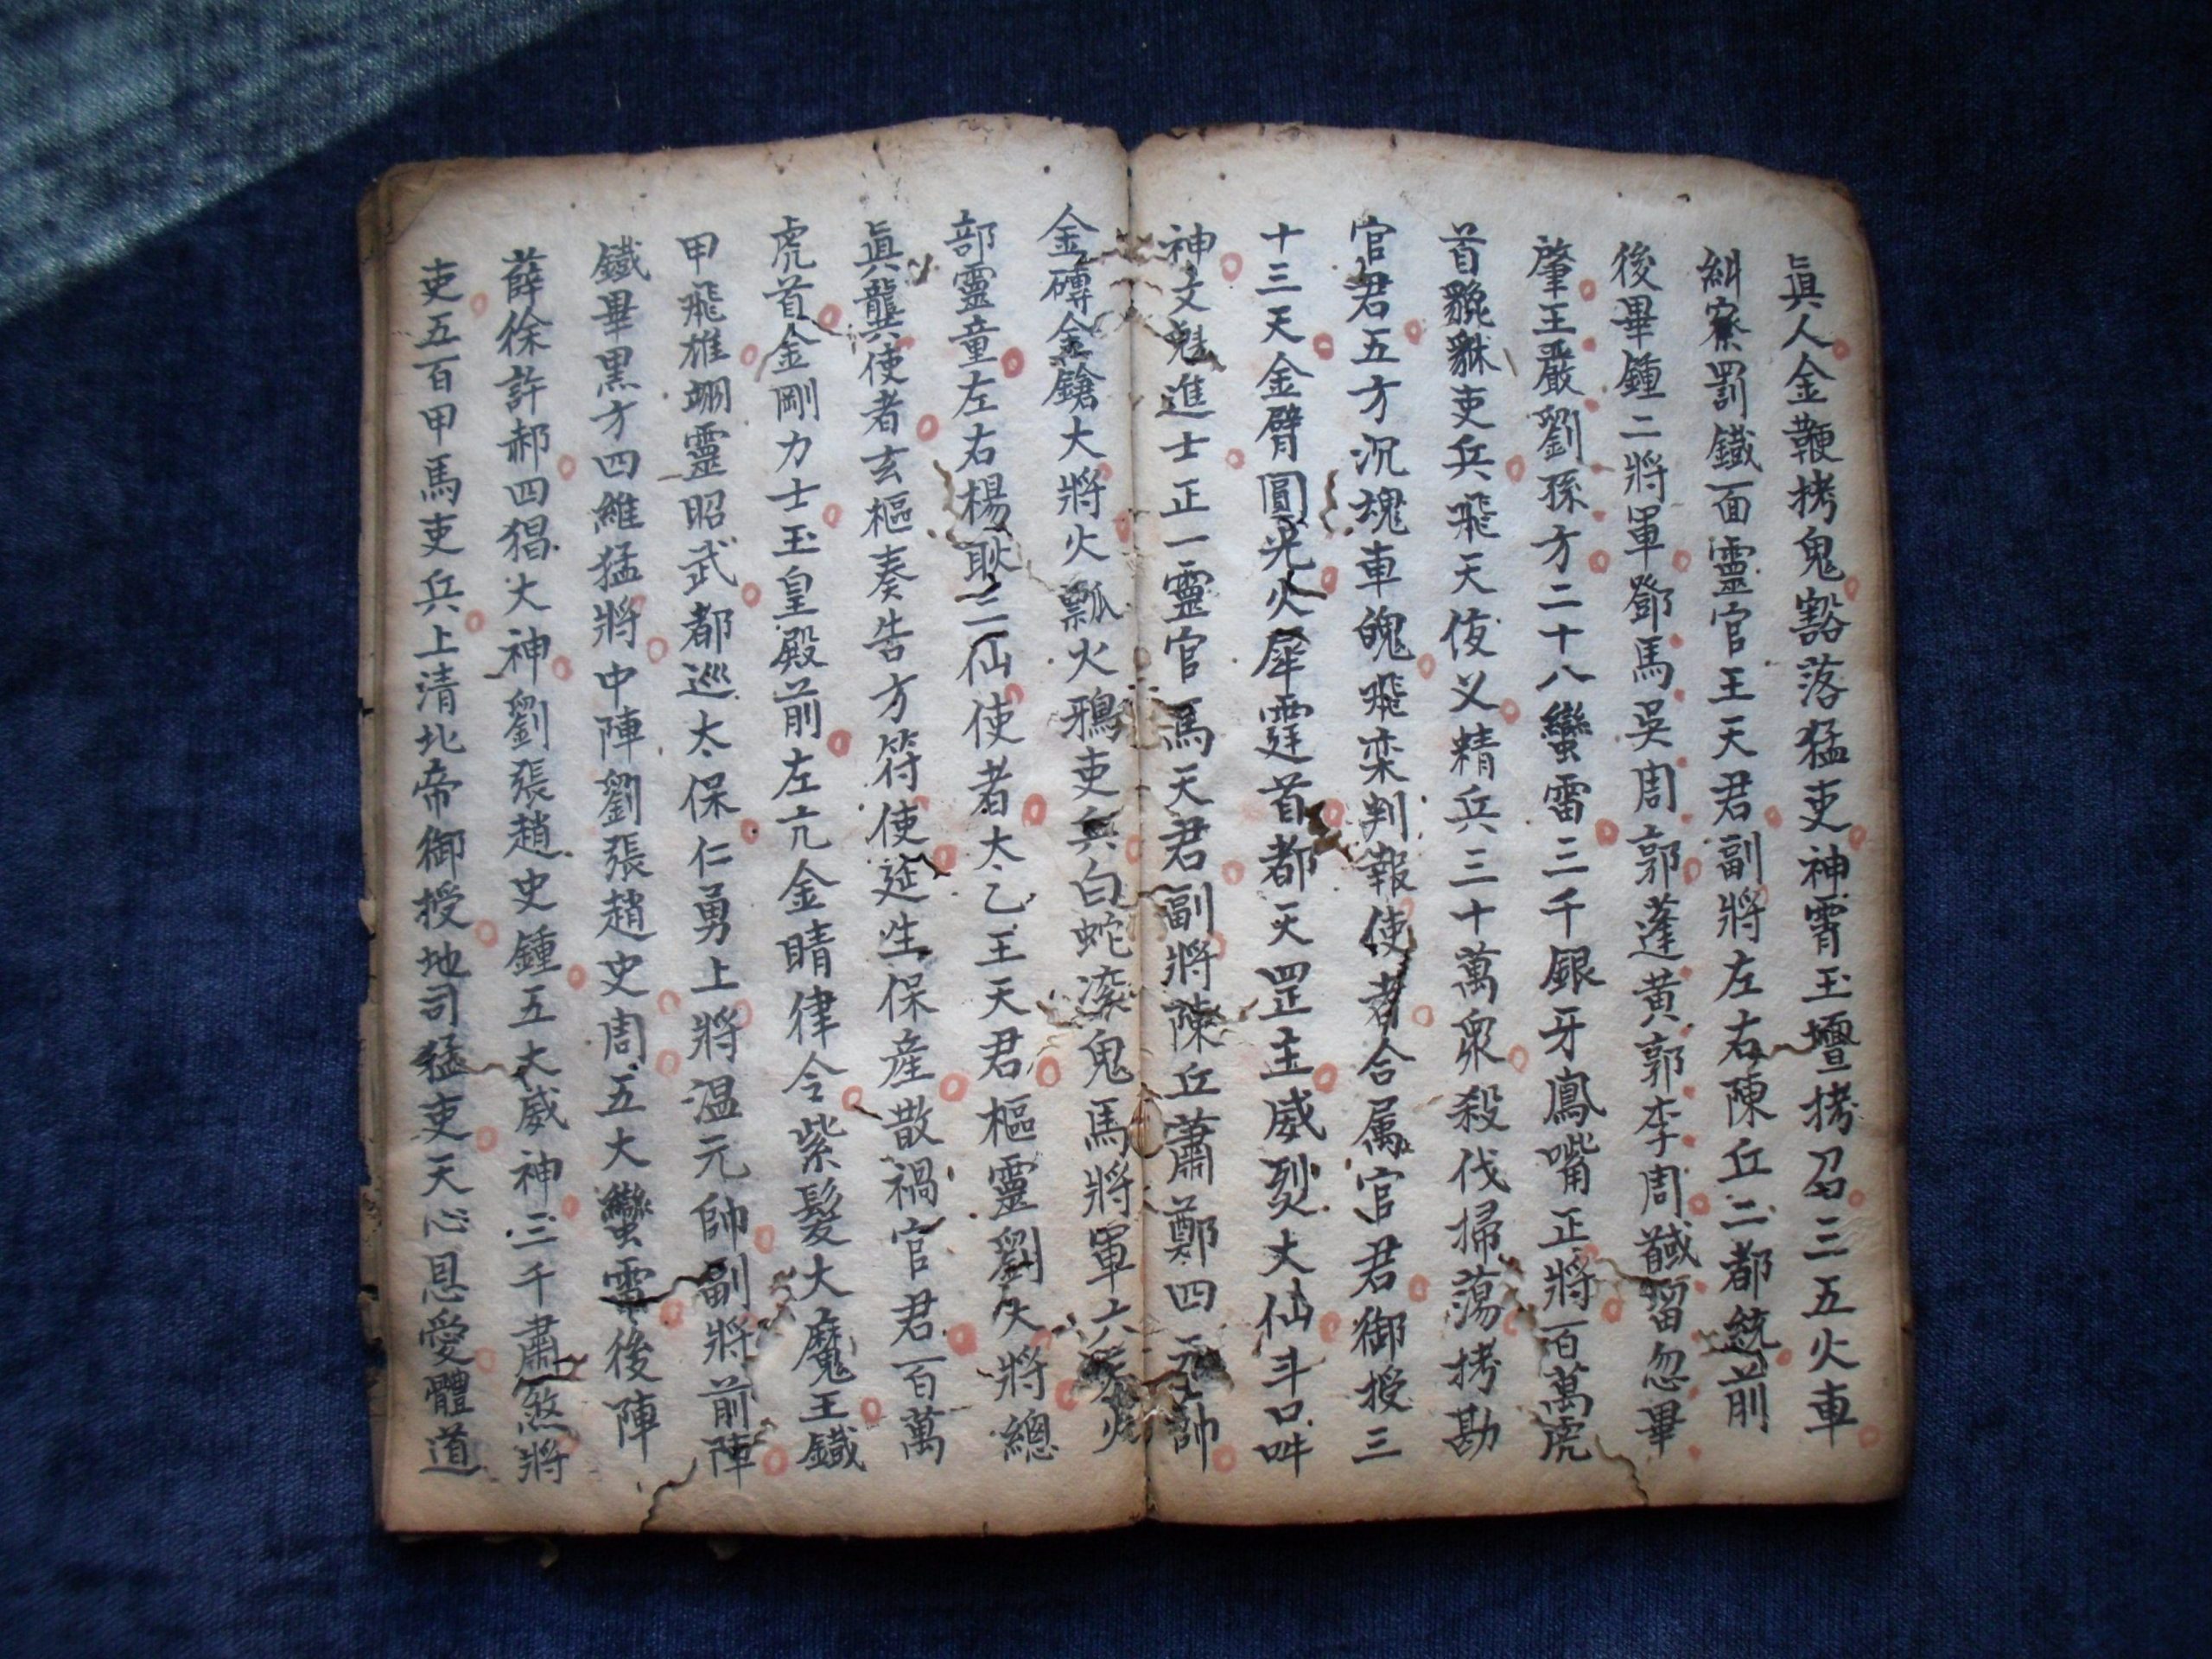 眞人金鞭拷鬼豁落猛吏神霄玉壇拷召三五火車
糾察罰鐵面靈官王天君副將左右陳丘二都統前
後畢鍾二將軍鄧馬吳周郭蓬黄郭李周留忽畢
肇王嚴劉孫方二十八蠻雷三千銀牙鳳嘴正將百萬虎
首貔貅吏兵飛天伎义精兵三十萬衆殺伐掃蕩拷勘
官君五方沉魂車魄飛奕判報使者合属官君御授三
十三天金臂圓光火犀霆首都天罡主威烈大仙斗口
神文魁進士正一靈官馬天君副將陳丘蕭鄭四元帥
金磚金鎗大將火瓢火鴉吏兵白蛇滾鬼馬將軍六
部靈童左右楊耿二仙使者太乙王天君樞靈劉大將總
眞龔使者玄樞奏告方符使延生保産散禍官君百萬
虎首金剛力士玉皇殿前左亢金睛律令紫髮大魔王鐵
甲飛雄翊靈昭武都巡太保仁勇上將温元帥副將前陣
鐵畢黒方四維猛將中陣劉張趙史周五大蠻雷後陣
薛徐許郝四猖大神劉張趙史鍾五大威神三千肅煞將
吏五百甲馬吏兵上清北帝御授地司猛吏天心恩愛體道